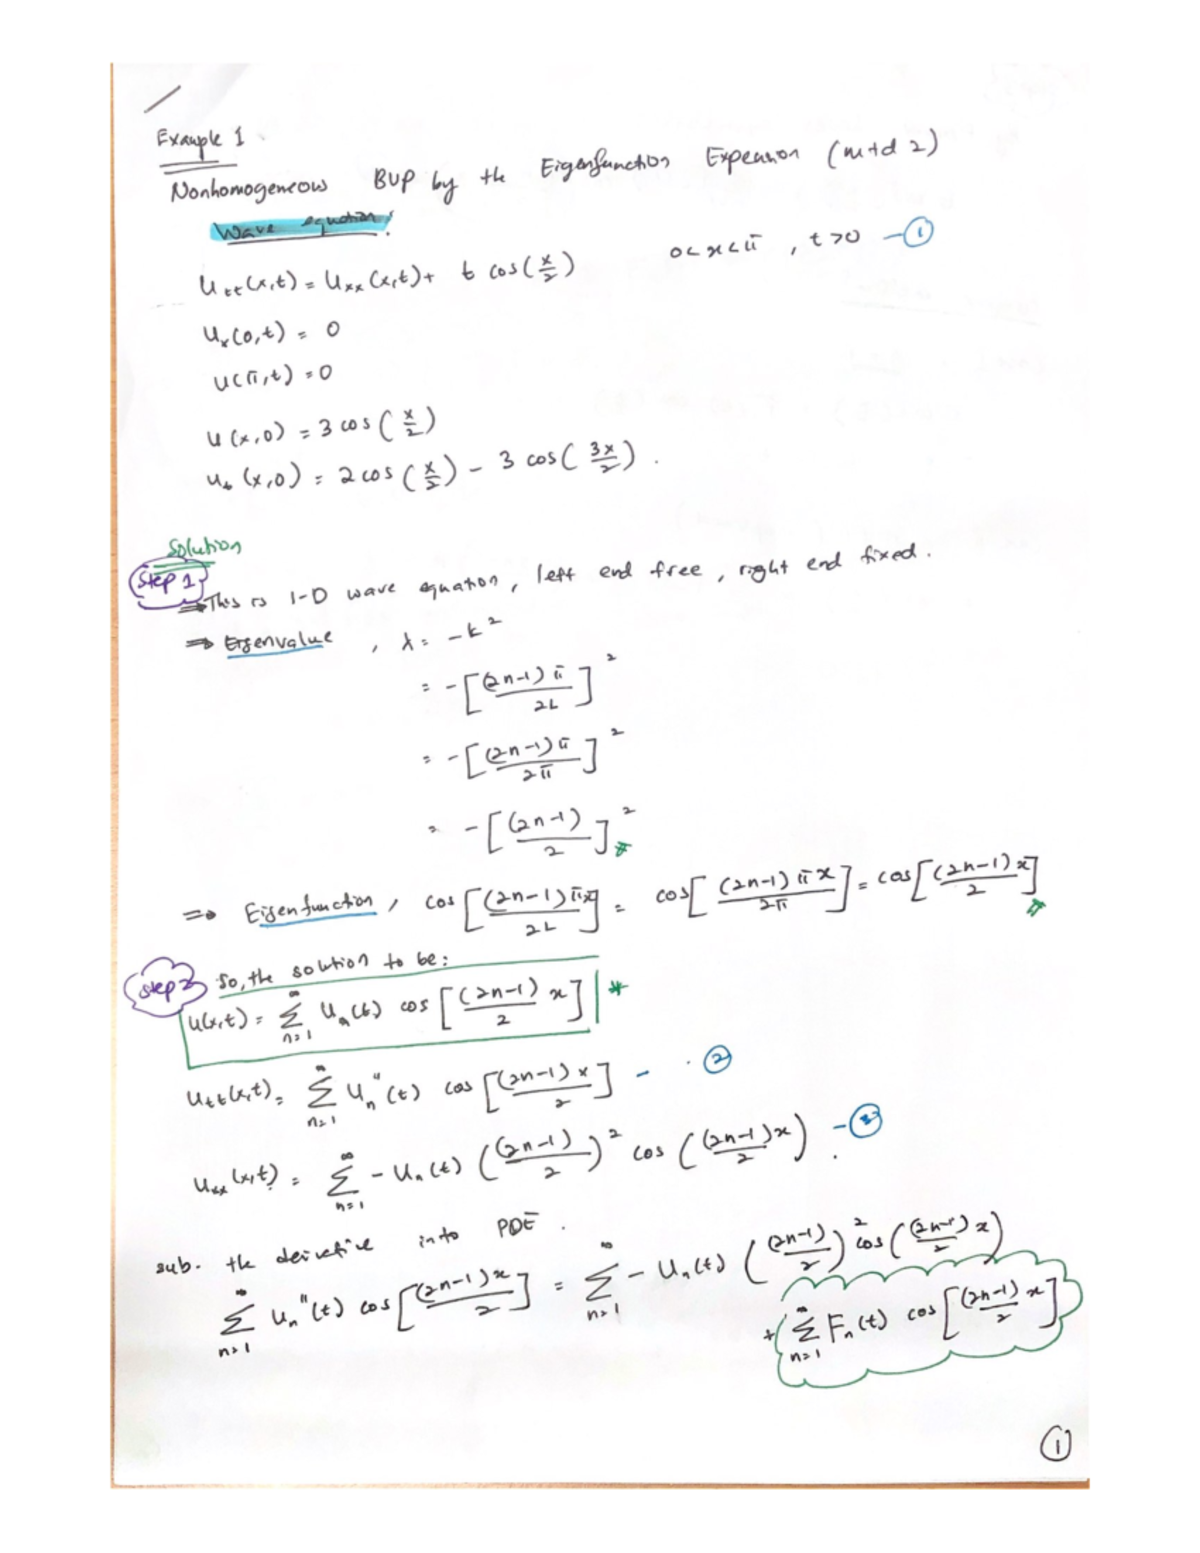 Example 1
Nonhomogeneous BVP by the Eigenfunction Expension (mtd 2)
Wave equation:
u_tt(x,t) = u_xx(x,t) + t cos(x/2)    0<x<π , t>0 —①
u_x(0,t) = 0
u(π,t) = 0
u(x,0) = 3 cos(x/2)
u_t(x,0) = 2 cos(x/2) - 3 cos(3x/2).
Solution
Step 1
⇒ This is 1-D wave equation, left end free, right end fixed.
⇒ Eigenvalue , λ = -k²
= -[(2n-1)π/2L]²
= -[(2n-1)π/2π]²
= -[(2n-1)/2]² #
⇒ Eigenfunction, cos[(2n-1)πx/2L] = cos[(2n-1)πx/2π] = cos[(2n-1)x/2] #
Step 2 So, the solution to be:
u(x,t) = ∞Σn=1 u_n(t) cos[(2n-1)/2 x] *
u_tt(x,t) = ∞Σn=1 u_n''(t) cos[(2n-1)x/2] - ②
u_xx(x,t) = ∞Σn=1 -u_n(t) ((2n-1)/2)² cos((2n-1)x/2). -③
sub. the derivative into PDE.
∞Σn=1 u_n''(t) cos[(2n-1)x/2] = ∞Σn=1 -u_n(t) ((2n-1)/2)² cos((2n-1)x/2)
+ ∞Σn=1 F_n(t) cos[(2n-1)/2 x]
①